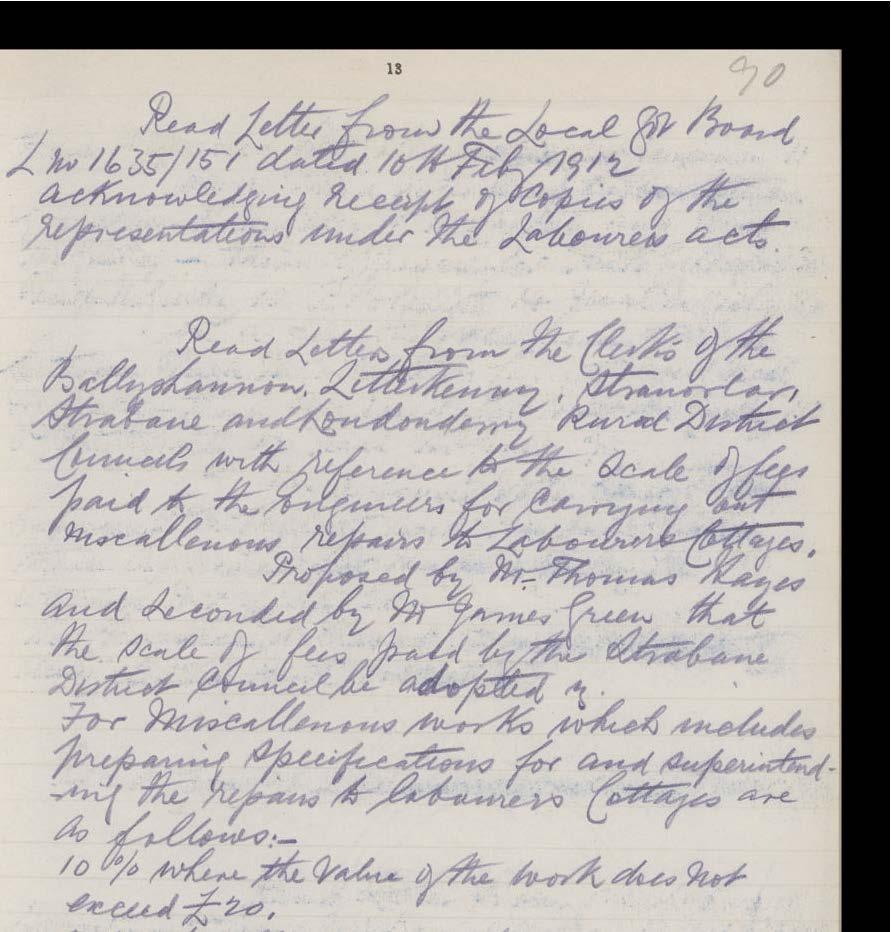 13
90
Read Letter from the Local Gvt Board
L no 1635/151 dated 10th Feby 1912
acknowledging receipt of Copies of the
representations under the Labourers acts.
Read Letters from the Clerks of the
Ballyshannon, Letterkenny, Stranorlar,
Strabane and Londonderry Rural District
Councils with reference to the Scale of fees
paid to the Engineers for Carrying out
Miscallenous repairs to Labourers Cottages.
Proposed by Mr Thomas Hayes
and Seconded by Mr James Green that
the Scale of fees paid by the Strabane
District Council be adopted
For Miscallenous works which includes
preparing Specifications for and superintend-
-ing the repairs to labourers Cottages are
as follows:-
10 % where the Value of the work does not
exceed £20.